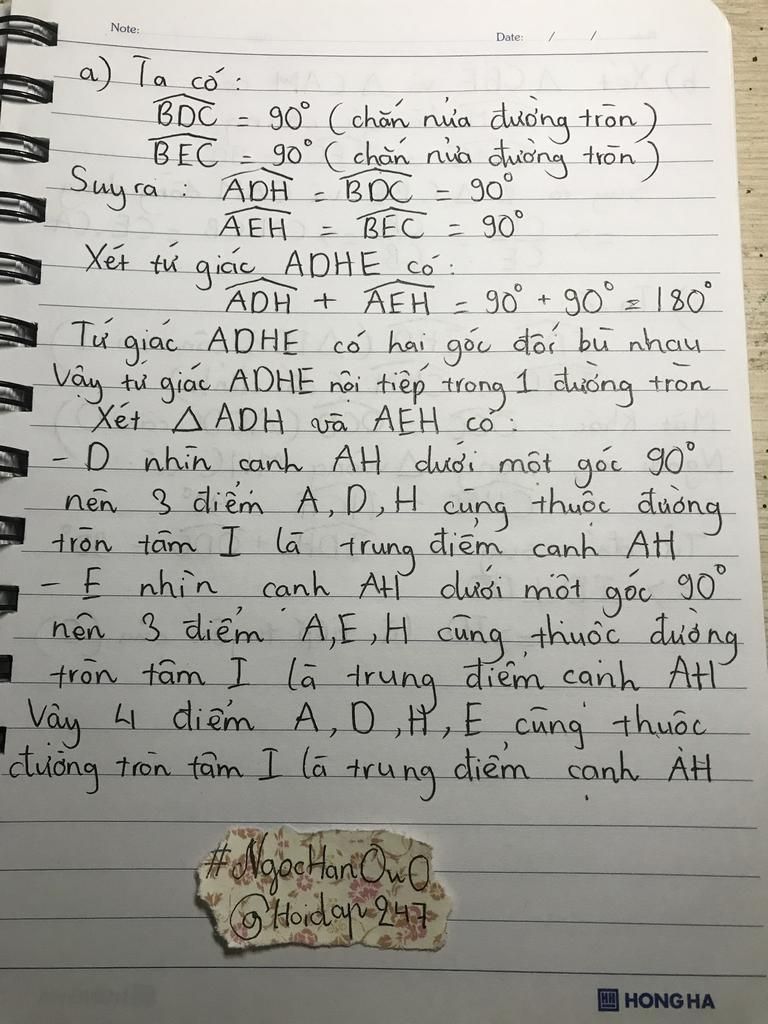 Note:
Date: / /
a) Ta có:
BDC = 90° (chắn nửa đường tròn)
BEC = 90° (chắn nửa đường tròn)
Suy ra: ADH = BDC = 90°
AEH = BEC = 90°
Xét tứ giác ADHE có:
ADH + AEH = 90° + 90° = 180°
Tứ giác ADHE có hai góc đối bù nhau
Vậy tứ giác ADHE nội tiếp trong 1 đường tròn
Xét △ ADH và AEH có:
- D nhìn cạnh AH dưới một góc 90°
nên 3 điểm A, D, H cùng thuộc đường
tròn tâm I là trung điểm cạnh AH
- E nhìn cạnh AH dưới một góc 90°
nên 3 điểm A, E, H cùng thuộc đường
tròn tâm I là trung điểm cạnh AH
Vậy 4 điểm A, D, H, E cùng thuộc
đường tròn tâm I là trung điểm cạnh AH
#NgocHanOwO
@Hoidap247
HR HONG HA